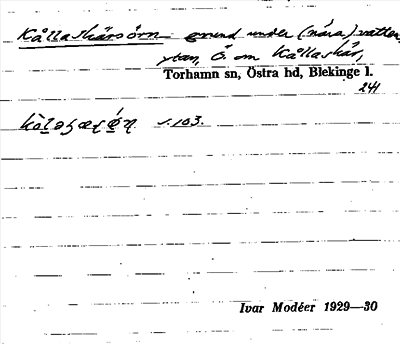 Kållaskärsörn grund under (nära) vatten-
ytan, Ö. om Kållaskär,
Torhamn sn, Östra hd, Blekinge l.
241
s. 103.
Ivar Modéer 1929—30